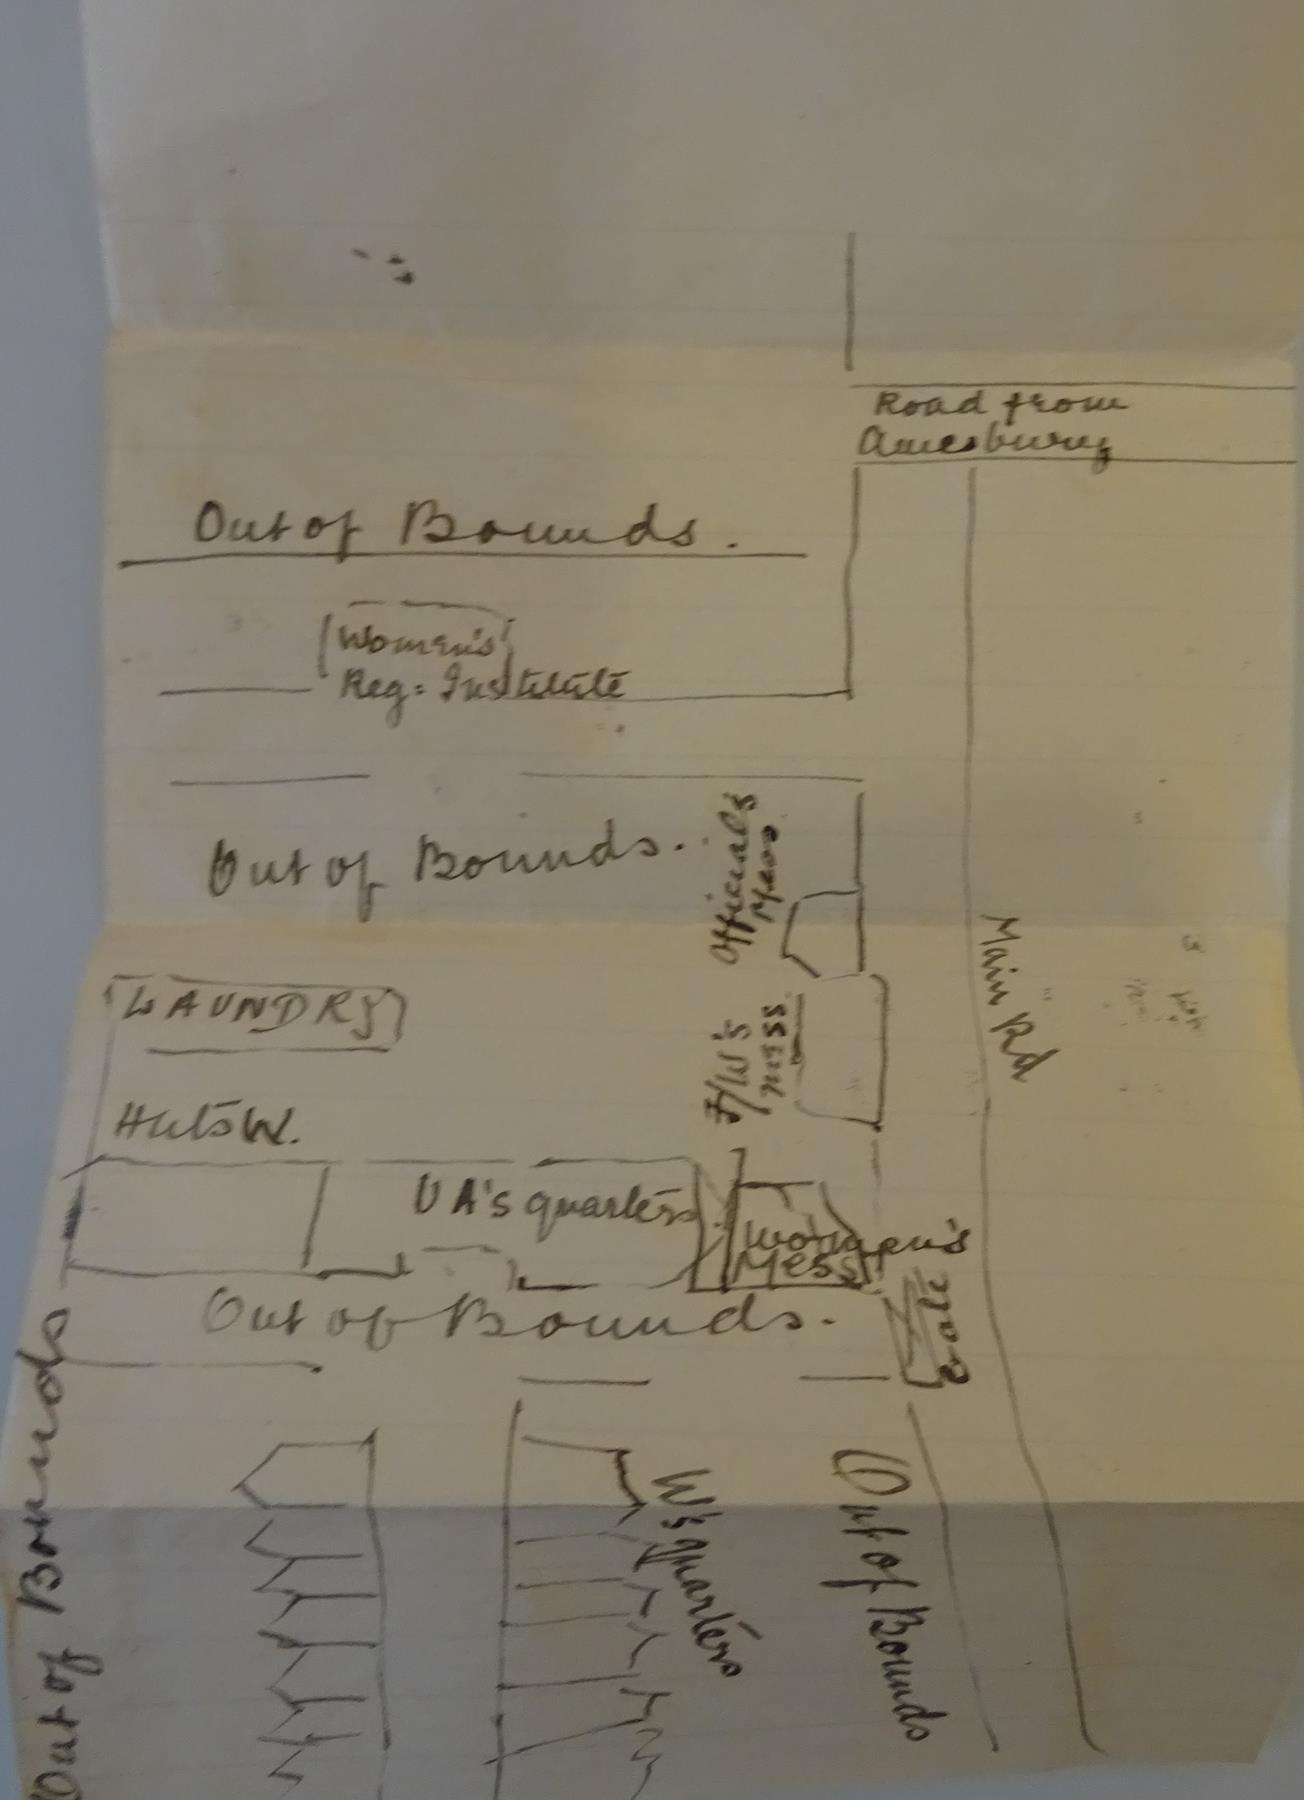 Road from
Amesbury
Out of Bounds.
Women's
Reg: Institute
Out of Bounds.
Officials
Mess
Main Rd
LAUNDRY
F/W's
MESS.
Huts W.
UA's quarters
Women's
Mess
Gate
Out of Bounds.
Out of Bounds
W's quarters
Out of Bounds